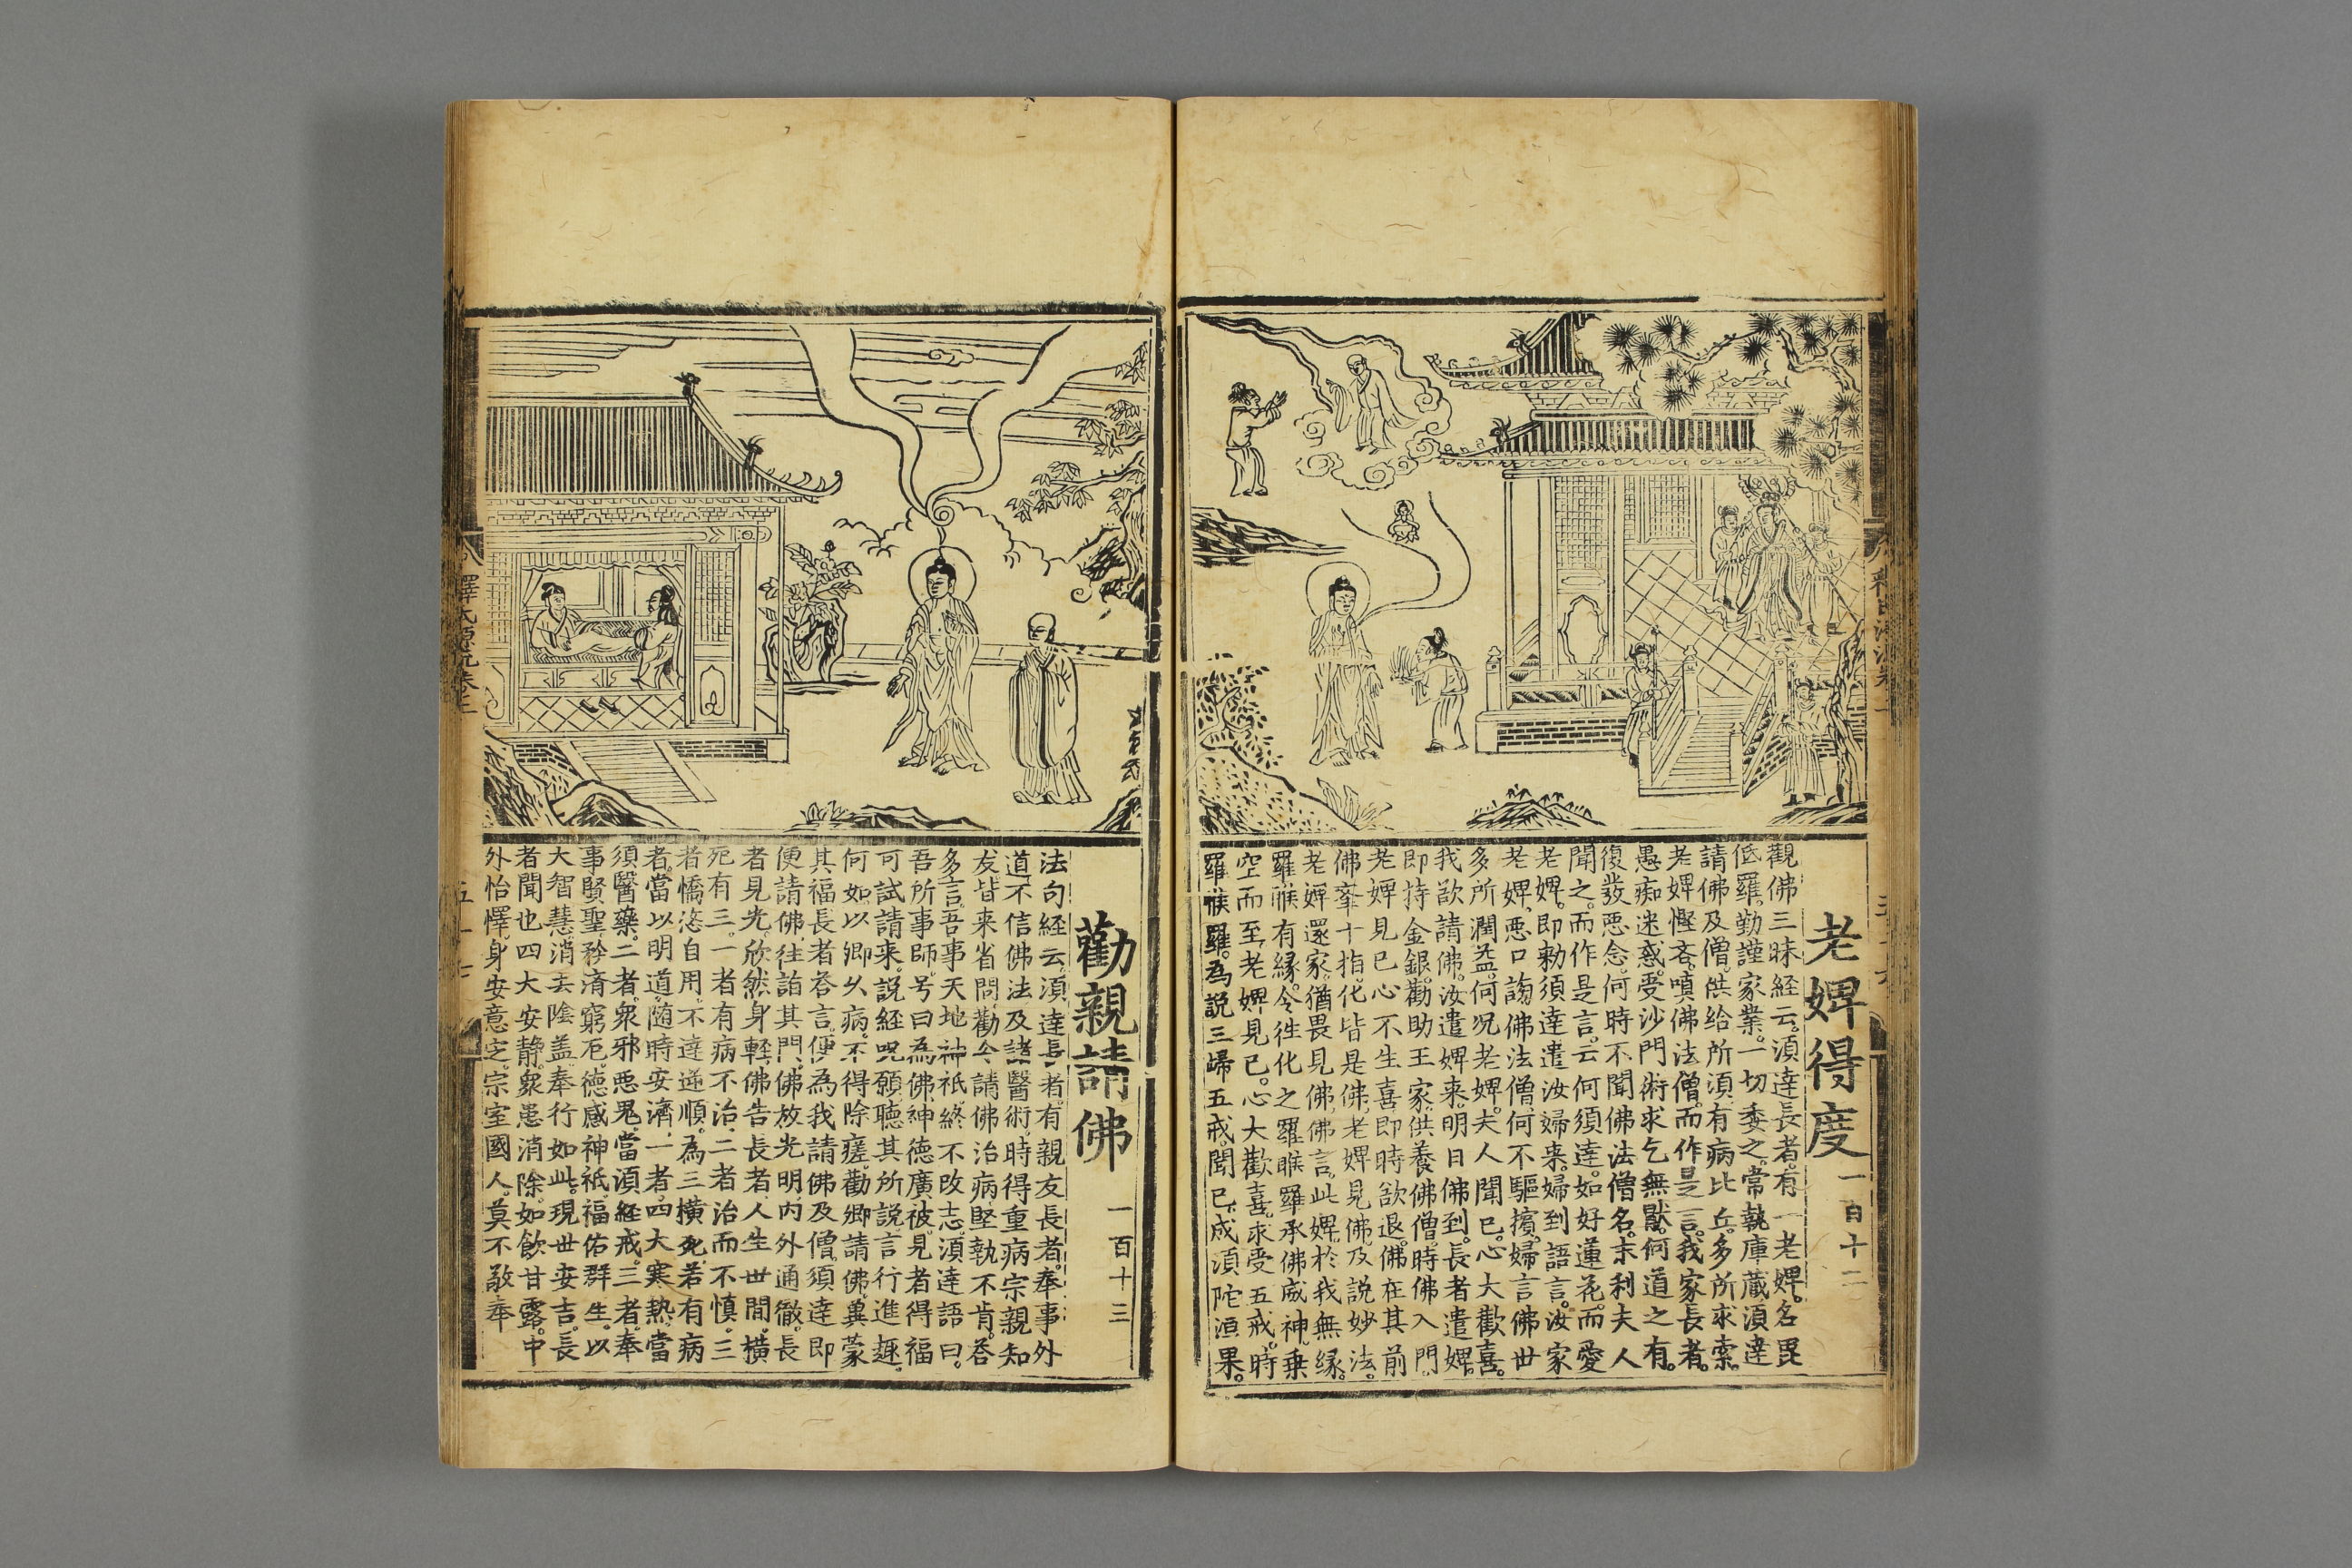 老婢得度
一百十二
觀佛三昧経云。湏逹長者。有一老婢。名毘
低羅。勤謹家業。一切委之。常執庫蔵。湏逹
請佛及僧。供給所湏。有病比丘。多所求索。
老婢慳吝。嗔佛法僧。而作是言。我家長者。
愚痴迷惑。受沙門術。求乞無猒。何道之有。
復發惡念。何時不聞佛法僧名。末利夫人
聞之。而作是言。云何須逹。如好蓮花。而愛
老婢。即勑須逹遣汝婦来。婦到語言。汝家
老婢。惡口謗佛法僧。何不驅擯。婦言佛世
多所潤益。何况老婢。夫人聞已。心大歡喜。
我欲請佛。汝遣婢来。明日佛到。長者遣婢。
即持金銀。勸助王家。供養佛僧。時佛入門。
老婢見已。心不生喜。即時欲退。佛在其前
佛峯十指。化皆是佛。老婢見佛。及説妙法。
老婢還家。猶畏見佛。佛言。此婢於我無縁。
羅睺有緣。令徃化之。羅睺羅承佛威神。乗
空而至。老婢見已。心大歡喜。求受五戒。時
羅睺羅。為説三歸五戒。聞已。成湏陀洹果。
勸親請佛
一百十三
法句経云。湏逹長者。有親友長者。奉事外
道。不信佛法。及諸醫術。時得重病。宗親知
友。皆来省問。勸令請佛治病。堅執不肯。荅
多言。吾事天地神祇。終不改志。湏逹語曰。
吾所事師。号曰為佛。神徳廣被。見者得福
可試請来。説経呪願。聽其所説。言行進趣。
何如。以卿久病。不得除瘥。勸卿請佛。兾蒙
其福。長者荅言。便為我請佛及僧。須逹即
便請佛。往詣其門。佛放光明。内外通徹。長
者見光。欣然身軽。佛告長者。人生世間。橫
死有三。一者有病不治。二者治而不慎。三
者憍恣自用。不逹逆順。為三橫死。若有病
者。當以明道。随時安濟。一者。四大寒熱。當
須醫藥。二者。衆邪惡鬼。當湏経戒。三者。奉
事賢聖。矜濟窮厄。徳感神祇。福佑群生。以
大智慧。消去陰盖。奉行如此。現世安吉。長
者聞也。四大安靜。衆患消除。如飲甘露。中
外怡懌。身安意定。宗室國人。莫不敬奉